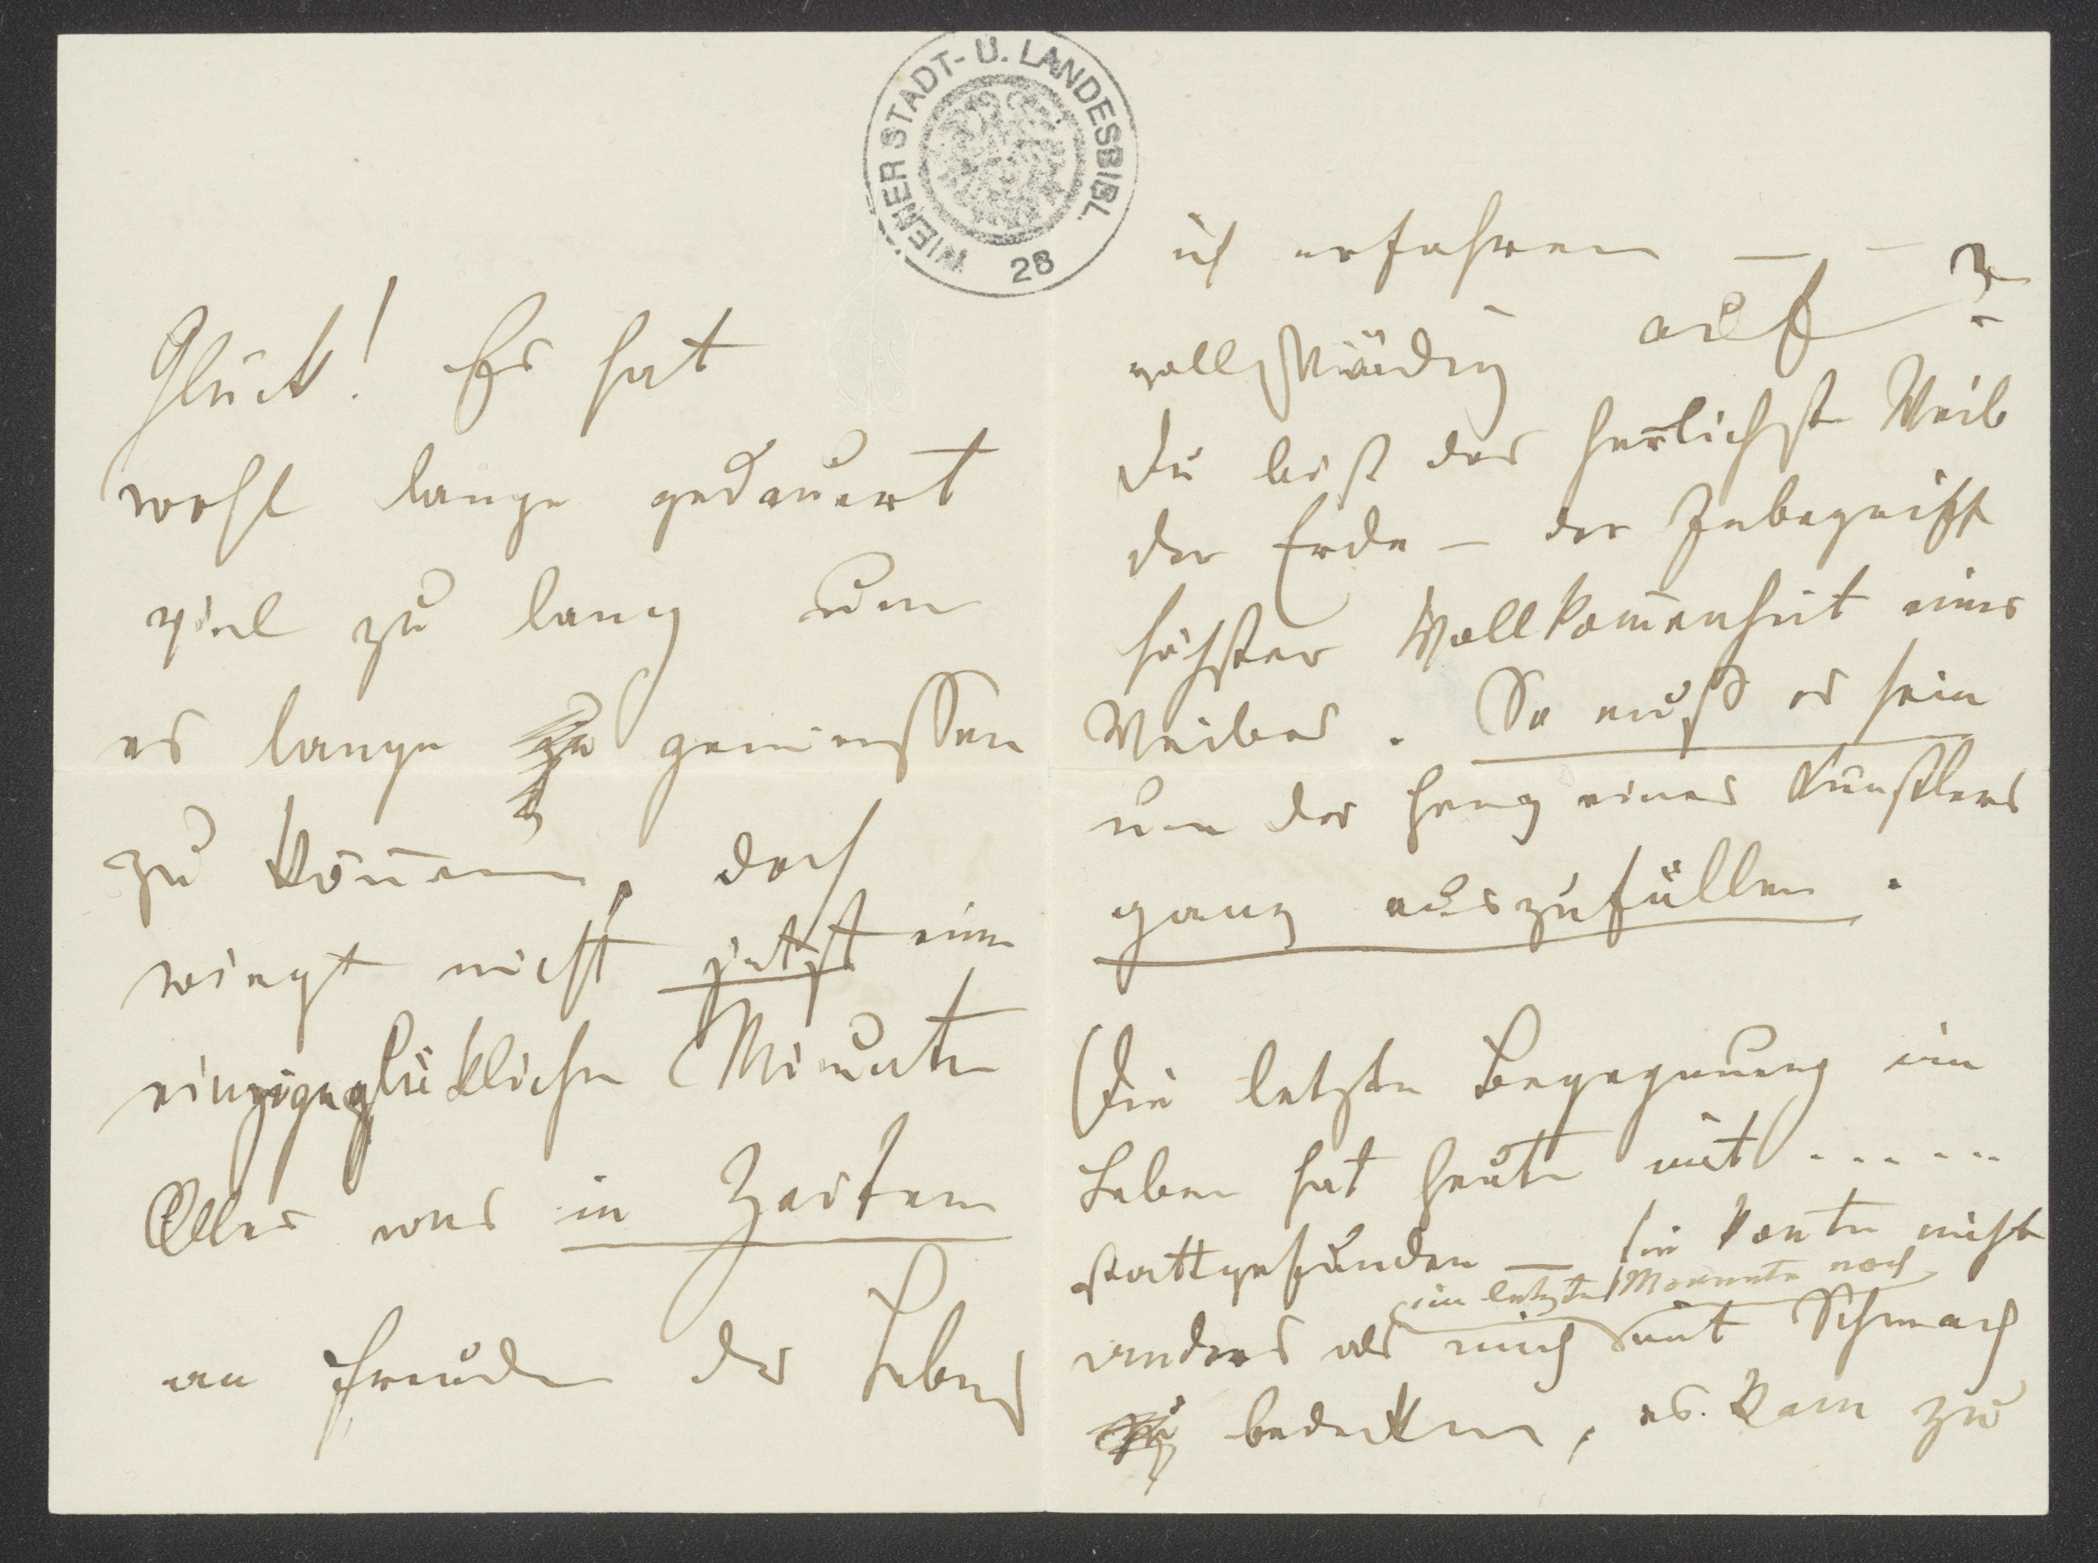 WIENER STADT- U. LANDESBIBL.
28
Glück! Es hat
wohl lange gedauert
viel zu lang um
es lange geniessen
zu können, doch
wiegt nicht jetzt eine
einzige glückliche Minute
Alles was in Zeiten
an Freuden des Lebens
ich erfahren — —
vollständig auf?
Du bist das herrlichste Weib
der Erde — der Inbegriff
höchster Vollkom̅enheit eines
Weibes. So muß es sein
um das Herz eines Künstlers
ganz auszufüllen.
Die letzte Begegnung im
Leben hat heute mit ......
stattgefunden — sie konte nicht
im letzten Momente noch
anders als mich mit Schmach
zu bedecken, es kam zu